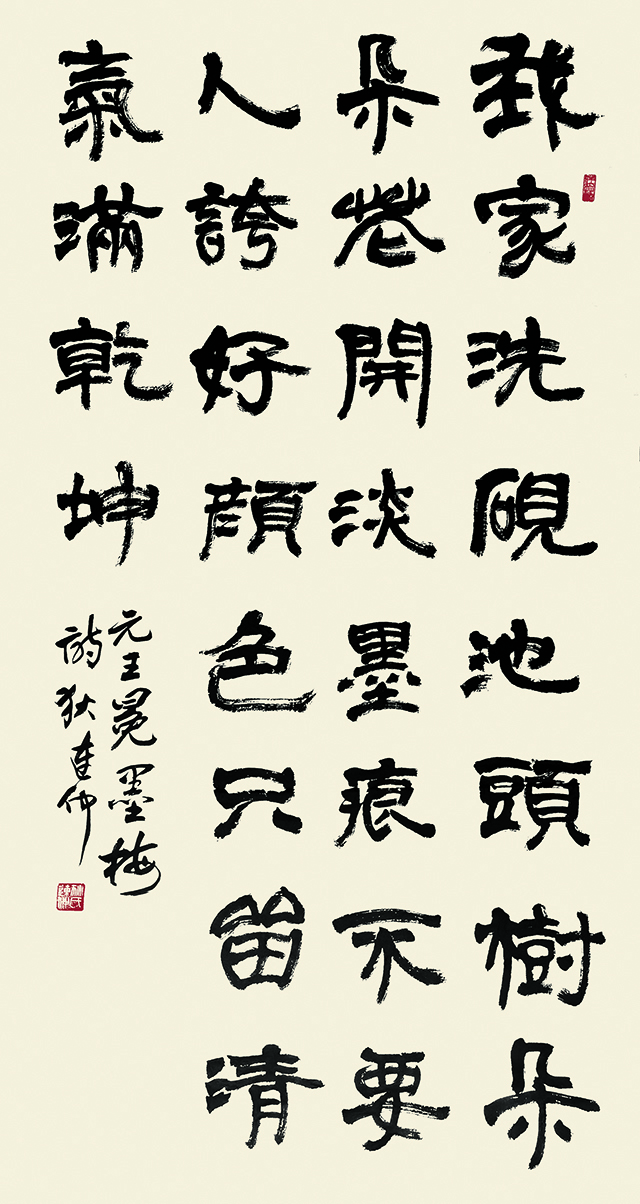 我家洗硯池頭樹朵
朵花開淡墨痕不要
人誇好顔色只留清
氣滿乾坤
元王冕墨梅
詩狄仲